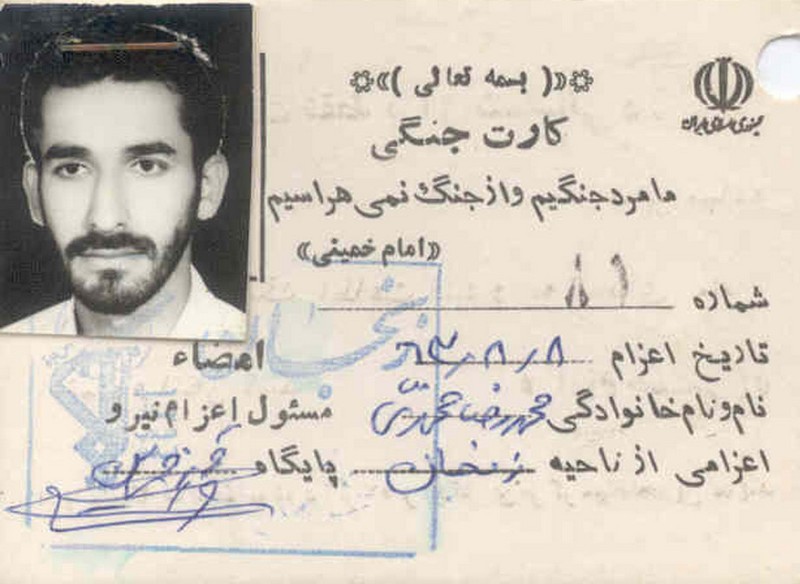 جمهوری اسلامی ایران
(بسمه تعالی)
کارت جنگی
ما مرد جنگیم و از جنگ نمی هراسیم
«امام خمینی»
شماره
تاریخ اعزام ۶۳/۸/۸ امضاء
نام و نام خانوادگی محمدرضا مسئول اعزام نیرو
اعزامی از ناحیه زنجان پایگاه